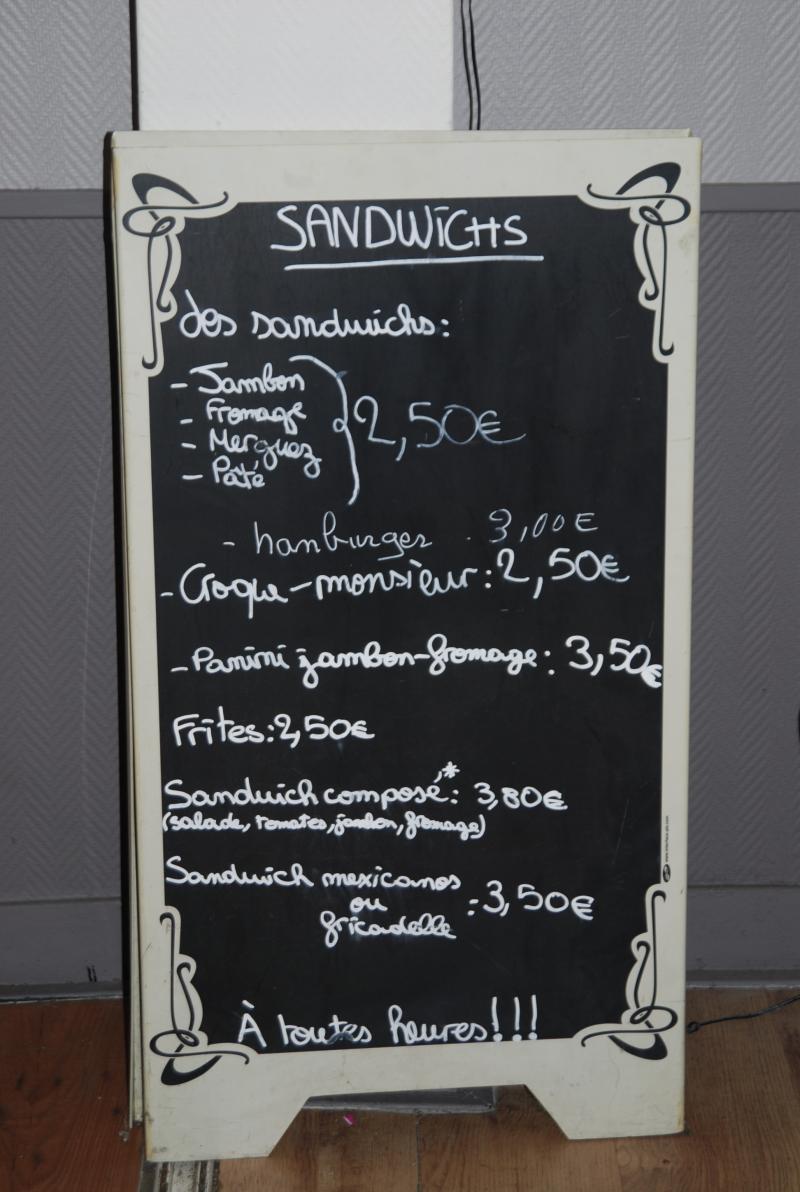 SANDWICHS
des sandwichs:
- Jambon
- Fromage
- Merguez
- Pâté
2,50€
- hanburger . 3,00€
- Croque-monsieur: 2,50€
- Panini jambon-fromage: 3,50€
Frites: 2,50€
Sandwich composé*: 3,80€
(salade, tomates, jambon, fromage)
Sandwich mexicanos
ou
fricadelle
: 3,50€
À toutes heures!!!